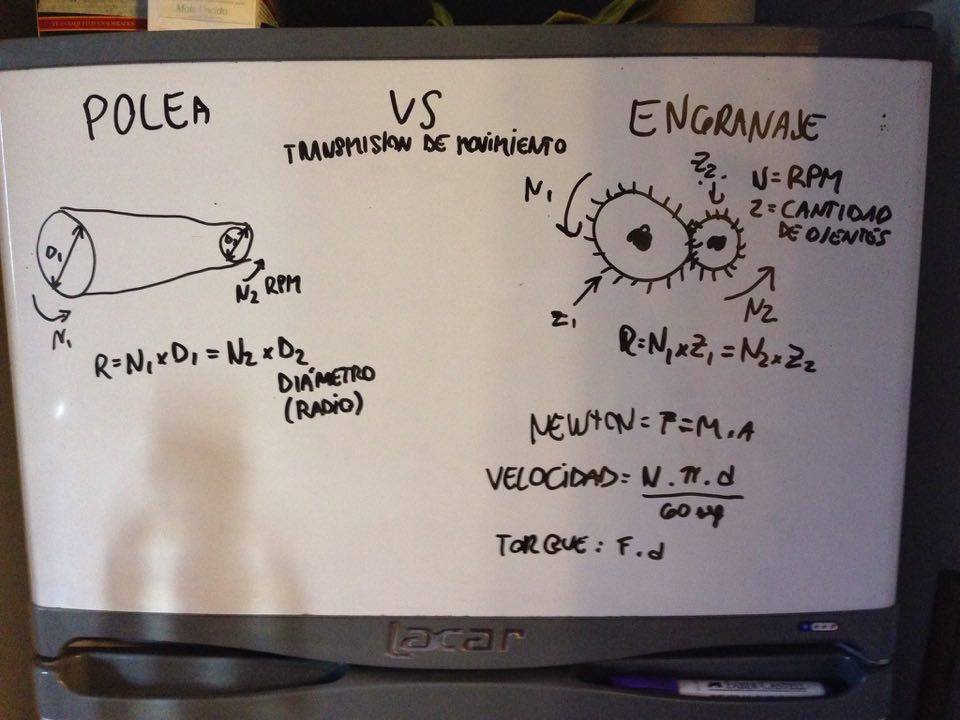 MateCocido
POLEA
VS
TRANSMISION DE MOVIMIENTO
ENGRANAJE
D1
D2
N1
N2 RPM
R=N1×D1=N2×D2
DIÁMETRO
(RADIO)
N1
Z2
N=RPM
Z=CANTIDAD
DE DIENTES
Z1
N2
R=N1×Z1=N2×Z2
NEWTON=F=M.A
VELOCIDAD= N.π.d
60 seg
TORQUE: F.d
Lacar